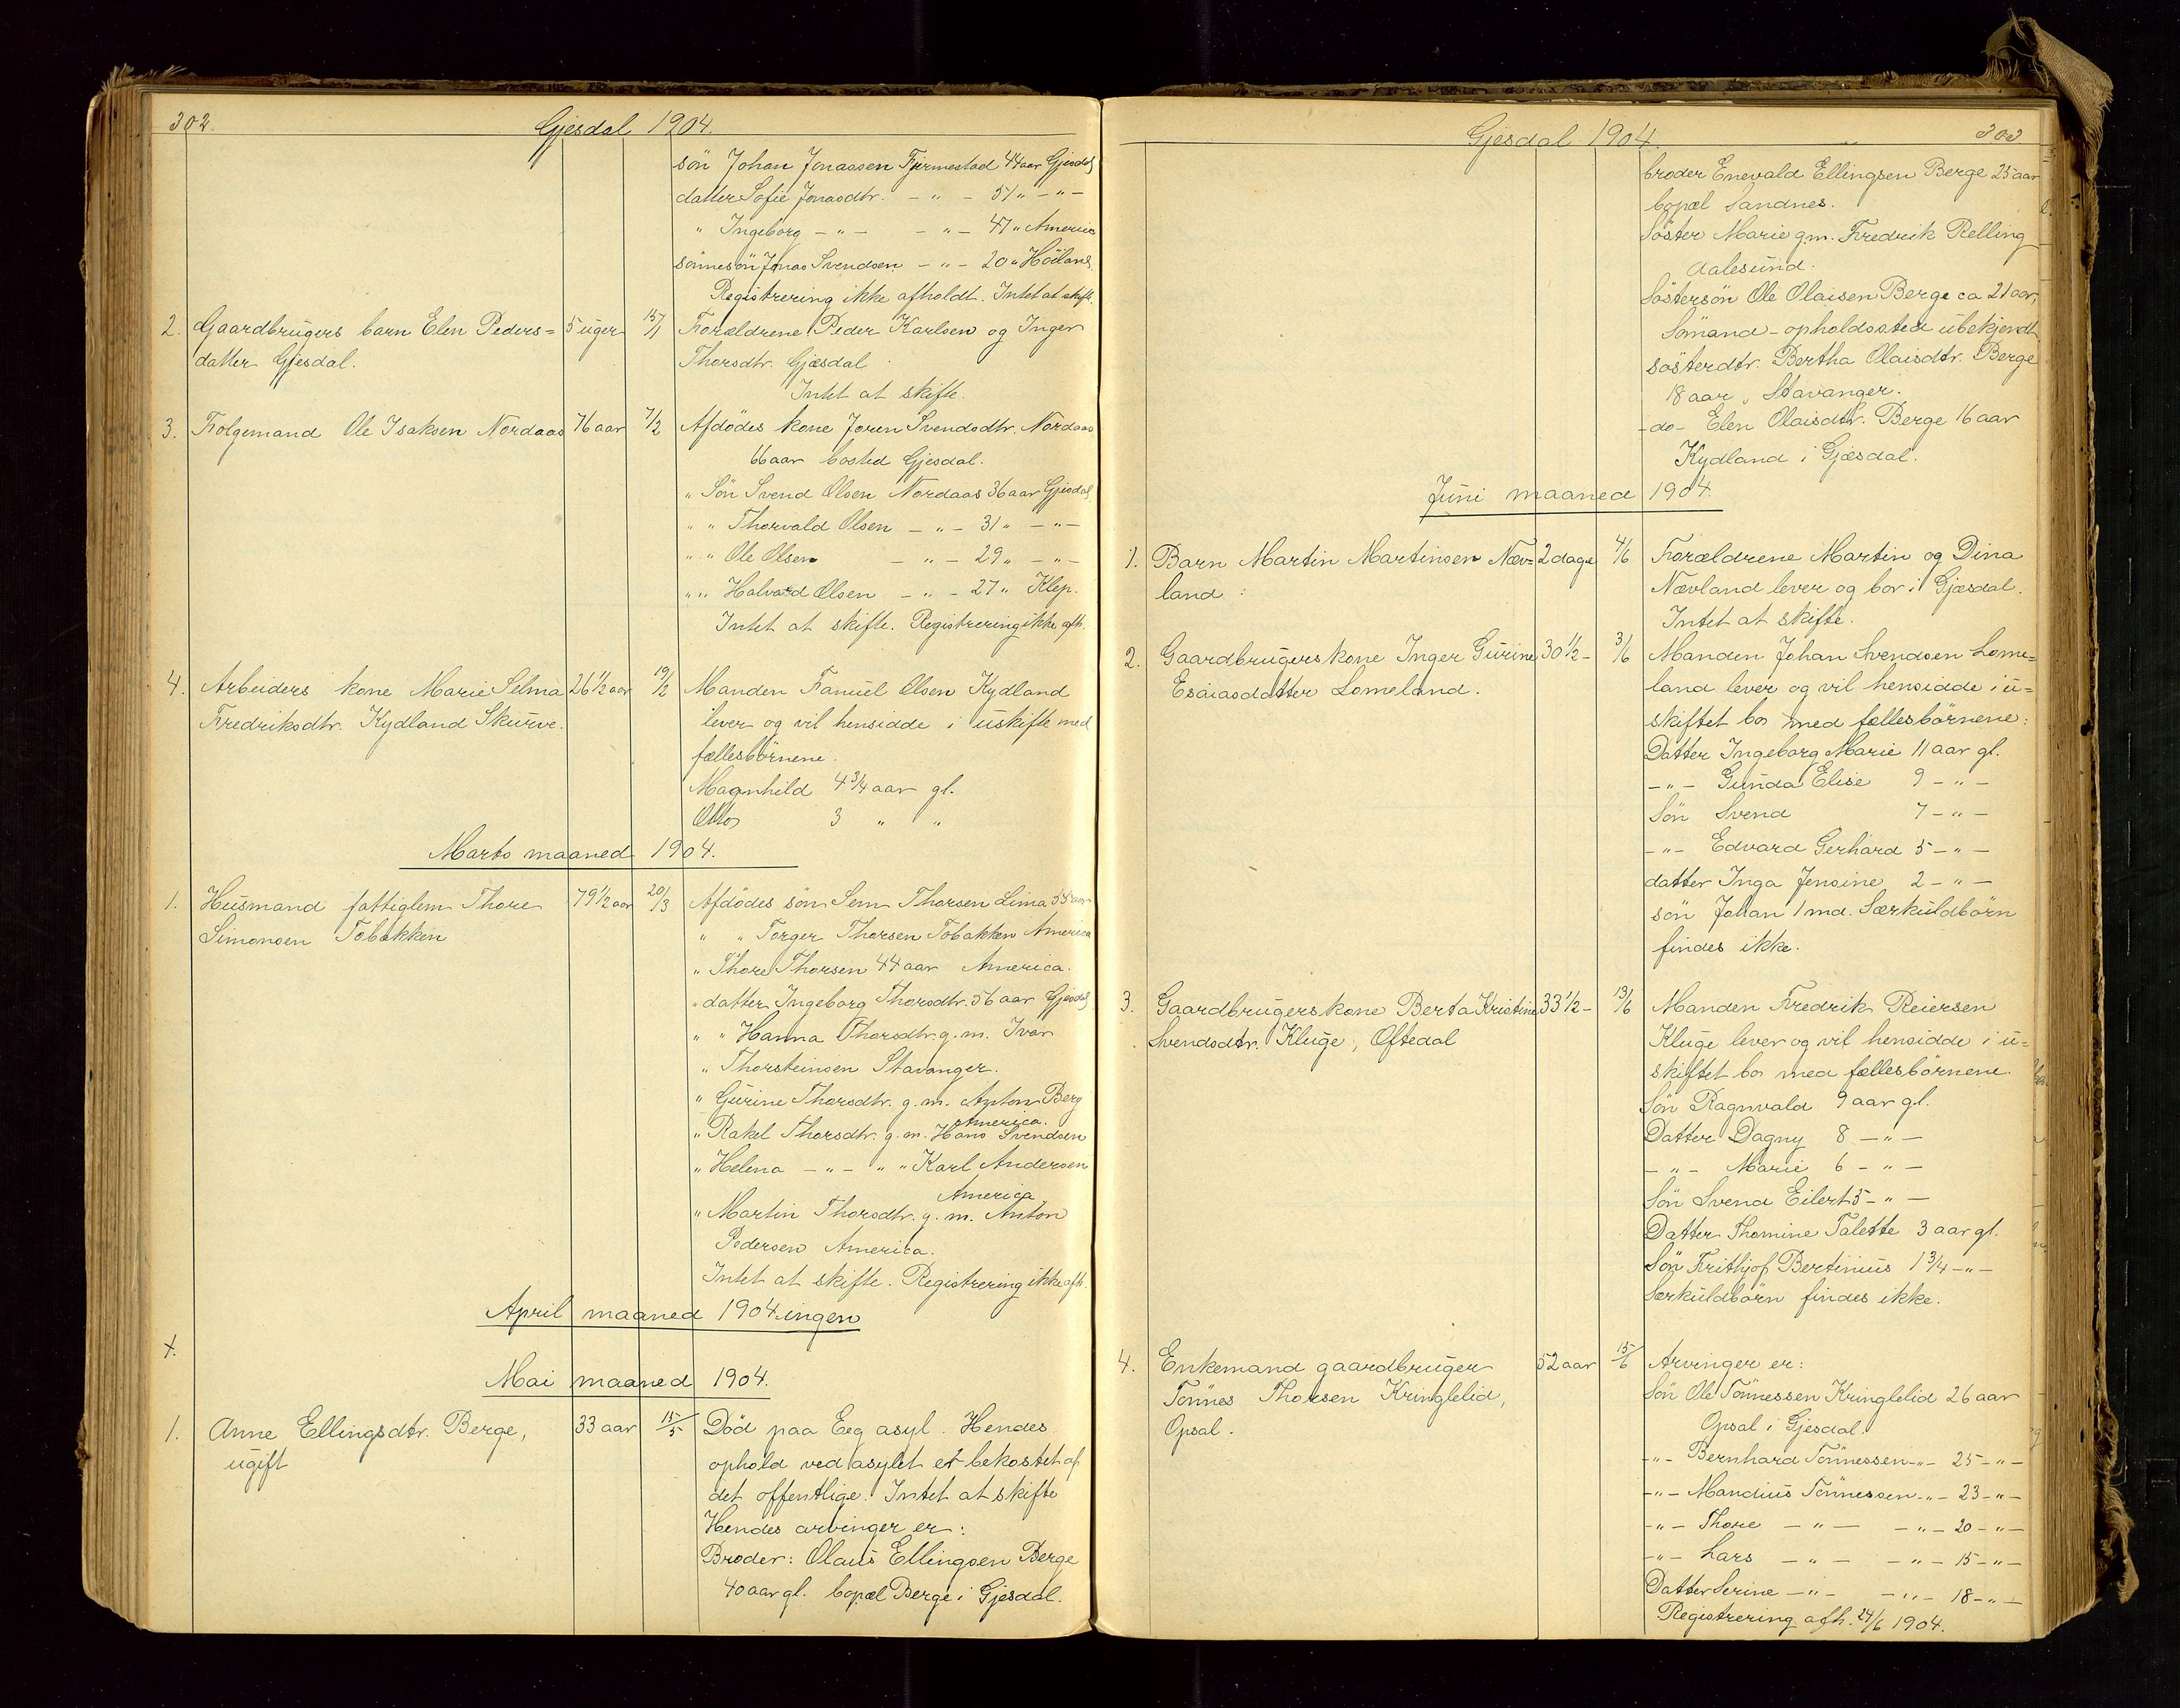 302.
Gjesdal 1904.
sön Johan Jonassen Fjermestad 44 aar Gjesdal
datter Sofie Jonasdtr. - " - 51 " - " -
" Ingeborg - " - - " - 47 " America
sönnesön Jonas Svendsen - " - 20 " Höiland
Registrering ikke afholdt. Intet at skift.
2. Gaardbrugers barn Elen Peders= 5 uger 15/1 Forældrene Peder Karlsen og Inger
datter Gjesdal. Thorsdtr. Gjæsdal
Intet at skifte.
3. Folgemand Ole Isaksen Nordaas 76 aar 7/2 Afdödes kone Joren Svendsdtr. Nordaas
66 aar bosted Gjesdal.
" Sön Svend Olsen Nordaas 36 aar Gjesdal
" " Thorvald Olsen - " - 31 " - " -
" " Ole Olsen - " - 29 " - " -
" " Halvard Olsen - " - 27 " Klep.
Intet at skifte. Registrering ikke afh.
4. Arbeiders kone Marie Selma 26 1/2 aar 19/2 Manden Fanuel Olsen Kydland
Fredriksdtr. Kydland Skurve. lever og vil hensidde i uskifte med
fællesbörnene.
Magnhild 4 3/4 aar gl.
Otto 3 " "
Marts maaned 1904.
1. Husmand fattiglem Thore 79 1/2 aar 20/3 Afdödes sön Sem Thorsen Lima aar
Simonsen Tobakken " " Torger Thorsen Tobakken America
" Thore Thorsen 44 aar America.
" datter Ingeborg Thorsdtr. 56 aar Gjesdal
" " Hanna Thorsdtr. g. m. Ivar
" Thorsteinsen Stavanger.
" Gurine Thorsdtr. g. m. Anton Berg
America.
" Rakel Thorsdtr. g. m. Hans Svendsen
" Helena - " - " " Karl Andersen
America
" Martin Thorsdtr. g. m. Anton
Pedersen America.
Intet at skifte. Registrering ikke afh.
April maaned 1904. ingen
Mai maaned 1904.
1. Anne Ellingsdtr. Berge, 33 aar 15/5 Död paa Eeg asyl. Hendes
ugift ophold ved asylet er bekostet af
det offentlige. Intet at skifte
Hendes arvinger er:
Broder: Olaus Ellingsen Berge
40 aar gl. bopæl Berge i Gjesdal.
Gjesdal 1904.
303
broder Enevald Ellingsen Berge 25 aar
bopæl Sandnes.
Söster Marie g.m. Fredrik Relling
Aalesund.
Söstersön Ole Olaisen Berge ca 21 aar,
Sömand - opholdssted ubekjendt
sösterdtr. Bertha Olaisdtr. Berge
18 aar " Stavanger.
- do - Elen Olaisdtr. Berge 16 aar
Kydland i Gjæsdal.
Juni maaned 1904.
1. Barn Martin Martinsen Næv= 2 dage 4/6 Forældrene Martin og Dina
land : Nævland lever og bor i Gjæsdal.
Intet at skifte.
2. Gaardbrugers kone Inger Gurine 30 1/2 - 3/6 Manden Johan Svendsen Lome=
Esaiasdatter Lomeland. land lever og vil hensidde i u=
skiftet bo med fællesbörnene:
Datter Ingeborg Marie 11 aar gl.
- " - Gunda Elise 9 - " -
Sön Svend 7 - " -
- " - Edvard Gerhard 5 - " -
datter Inga Jensine 2 - " -
sön Johan 1 md. Særkuldbörn
findes ikke.
3. Gaardbrugers kone Berta Kristine 33 1/2 - 13/6 Manden Fredrik Reiersen
Svendsdtr. Kluge, Oftedal Kluge lever og vil hensidde i u=
skiftet bo med fællesbörnene.
Sön Ragnvald 9 aar gl.
Datter Dagny 8 - " -
- " - Marie 6 - " -
Sön Svend Eilert 5 - " -
Datter Thomine Talette 3 aar gl.
Sön Frithjof Bertinius 1 3/4 - " -
Særkuldbörn findes ikke.
4. Enkemand gaardbruger 52 aar 15/6 Arvinger er:
Tönnes Thorsen Kringlelid, Sön Ole Tönnessen Kringlelid 26 aar
Opsal. Opsal i Gjesdal.
- " - Bernhard Tönnessen - " - 25 - " -
- " - Mandius Tönnessen - " - 23 - " -
- " - Thore - " - - " - 20 - " -
- " - Lars - " - - " - 15 - " -
Datter Serine - " - - " - 18 - " -
Registrering afh. 24/6 1904.